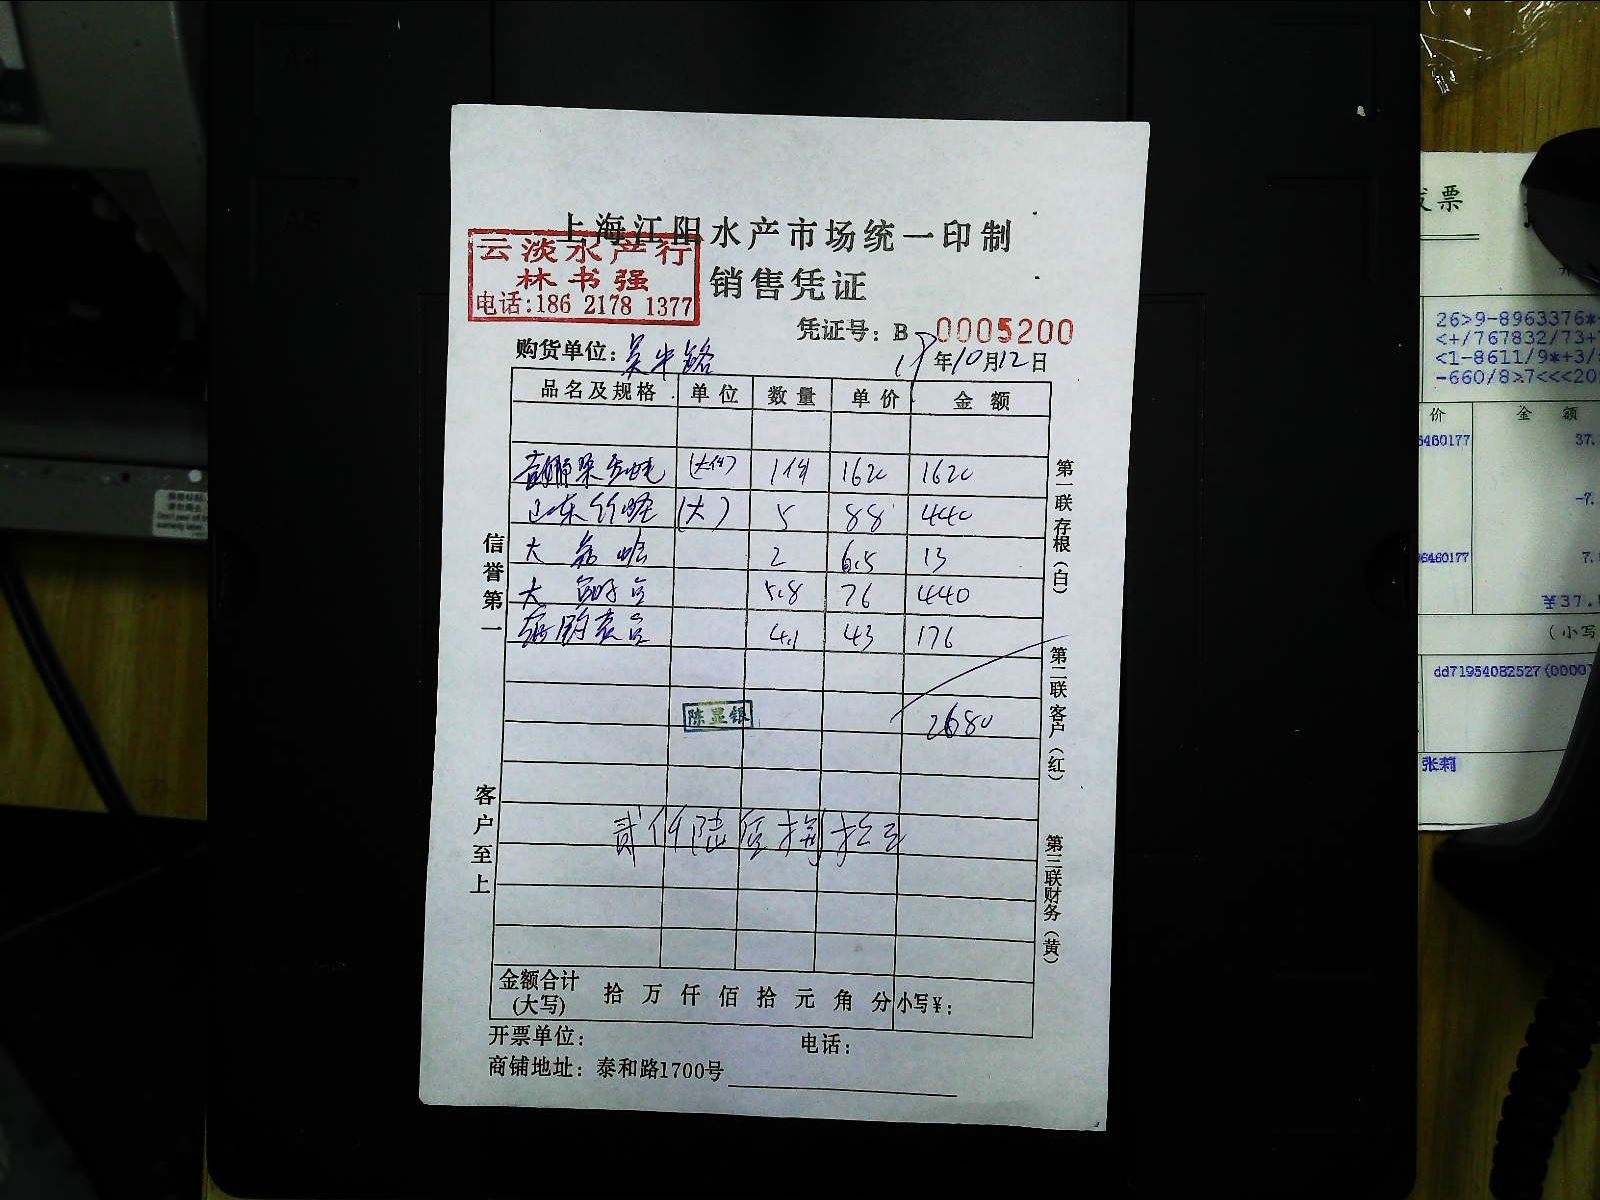 上海江阳水产市场统一印制
云淡水产行
林书强
电话:186 2178 1377
销售凭证
凭证号: B 0005200
购货单位:
17年10月12日
品名及规格 单位 数量 单价 金额
1620 1620
山东 (大) 5 88 440
大 2 6.5 13
大 5.8 76 440
4.1 43 176
陈显银
2680
贰仟陆佰捌拾元
金额合计
(大写)
拾 万 仟 佰 拾 元 角 分 小写¥:
开票单位: 电话:
商铺地址: 泰和路1700号
信誉第一
客户至上
第一联存根(白)
第二联客户(红)
第三联财务(黄)
票
26>9-8963376*
<+/767832/73+
<1-8611/9*+3/
-660/8>7<<<20
价 金 额
6460177 37.
-7.
6460177 7.
¥37.
(小写
dd71954082527(0000
张莉